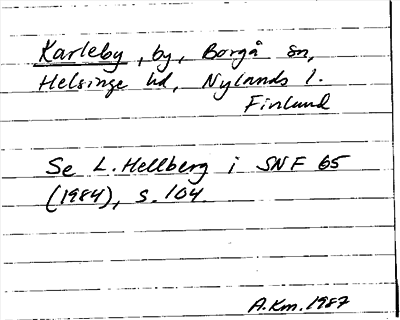 Karleby, by, Borgå sn,
Helsinge hd, Nylands l.
Finland
Se L. Hellberg i SNF 65
(1984), s. 104.
A.Km. 1987